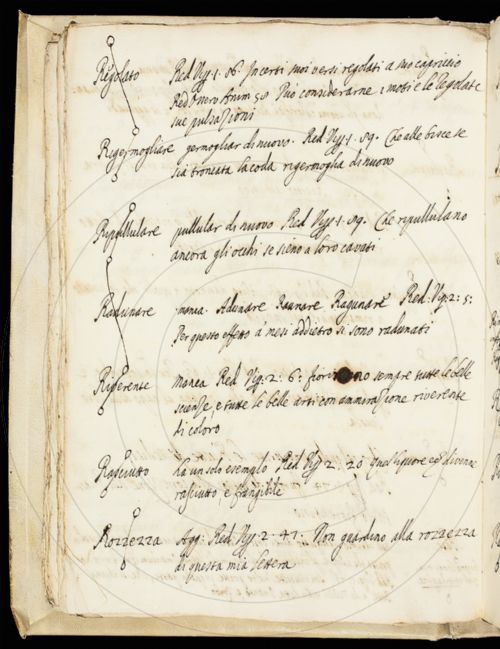 Regolato Red Vip. 1. 86. In certi suoi versi regolati a suo capriccio
Red Anim 58 Può considerarne i moti e le regolate
sue pulsazioni
Rigermogliare germogliar di nuovo. Red Vip. 1. 89. Che alle bisce se
sia troncata la coda rigermoglia di nuovo
Ripullulare pullular di nuovo Red Vip. 1. 89. Che ripullulano
ancora gli occhi se sieno a loro cavati
Radunare manca. Adunare Raunare Ragunare Red. Vip. 2: 5:
Per questo effetto a' mesi addietro si sono radunati
Riverente Manca Red Vip. 2: 6: sempre tutte le belle
scienze, e tutte le belle arti con ammirazione riverente
di coloro
Rasciutto ha un solo esemplo Red Vip 2: 20 quel liquore divenne
rasciutto, e frangibile
Rozzezza Agg: Red. Vip. 2 41. Non guardino alla rozzezza
di questa mia lettera